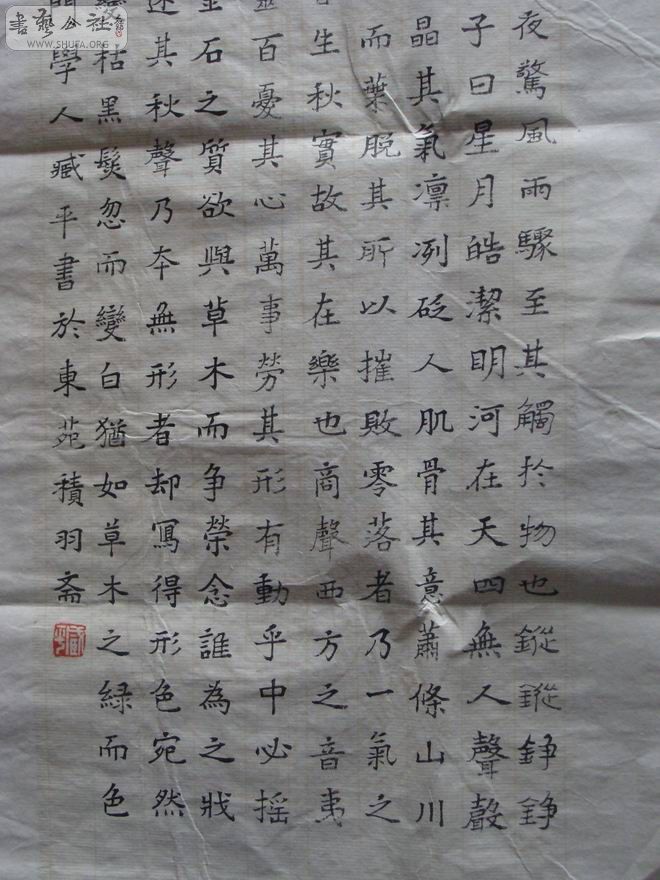 書藝公社
WWW.SHUFA.ORG
夜驚風雨驟至其觸於物也鏦鏦錚錚
子曰星月皓潔明河在天四無人聲聲
晶其氣凛冽砭人肌骨其意蕭條山川
而葉脫其所以摧敗零落者乃一氣之
生秋實故其在樂也商聲西方之音夷
百憂其心萬事勞其形有動乎中必摇
金石之質欲與草木而争榮念誰為之戕
述其秋聲乃本無形者却寫得形色宛然
枯黑髮忽而變白猶如草木之緑而色
學人臧平書於東苑積羽斋